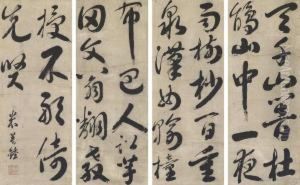 天千山響杜
鵑山中一夜
雨樹杪百重
泉漢女輸橦
布巴人訟芋
田文翁翻教
授不敢倚
先賢